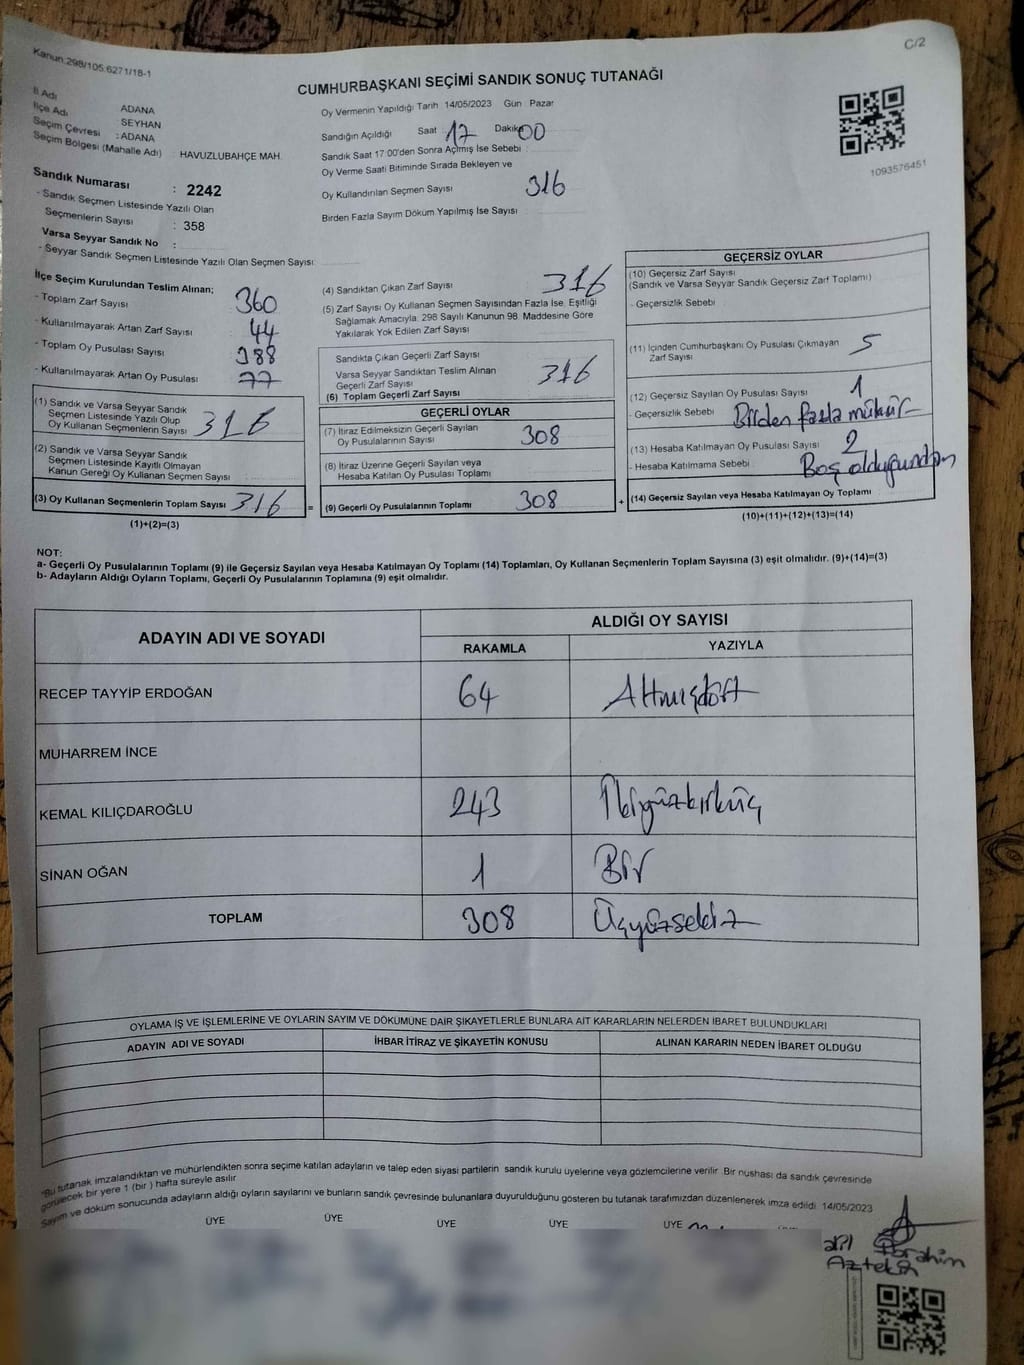 Kanun:298/105.6271/18-1
C/2
CUMHURBAŞKANI SEÇİMİ SANDIK SONUÇ TUTANAĞI
İl Adı ADANA
İlçe Adı SEYHAN
Seçim Çevresi : ADANA
Seçim Bölgesi (Mahalle Adı) : HAVUZLUBAHÇE MAH.
Oy Vermenin Yapıldığı Tarih 14/05/2023 Gün Pazar
Sandığın Açıldığı Saat 17 Dakika 00
Sandık Saat 17:00'den Sonra Açılmış İse Sebebi :
Oy Verme Saati Bitiminde Sırada Bekleyen ve
Oy Kullandırılan Seçmen Sayısı 316
Birden Fazla Sayım Döküm Yapılmış İse Sayısı :
1093576451
Sandık Numarası : 2242
- Sandık Seçmen Listesinde Yazılı Olan
Seçmenlerin Sayısı : 358
Varsa Seyyar Sandık No :
- Seyyar Sandık Seçmen Listesinde Yazılı Olan Seçmen Sayısı:
İlçe Seçim Kurulundan Teslim Alınan;
- Toplam Zarf Sayısı 360
- Kullanılmayarak Artan Zarf Sayısı 44
- Toplam Oy Pusulası Sayısı 388
- Kullanılmayarak Artan Oy Pusulası 77
(1) Sandık ve Varsa Seyyar Sandık
Seçmen Listesinde Yazılı Olup
Oy Kullanan Seçmenlerin Sayısı 316
(2) Sandık ve Varsa Seyyar Sandık
Seçmen Listesinde Kayıtlı Olmayan
Kanun Gereği Oy Kullanan Seçmen Sayısı
(3) Oy Kullanan Seçmenlerin Toplam Sayısı 316
(1)+(2)=(3)
=
(4) Sandıktan Çıkan Zarf Sayısı 316
(5) Zarf Sayısı Oy Kullanan Seçmen Sayısından Fazla İse, Eşitliği
Sağlamak Amacıyla, 298 Sayılı Kanunun 98. Maddesine Göre
Yakılarak Yok Edilen Zarf Sayısı
Sandıkta Çıkan Geçerli Zarf Sayısı
Varsa Seyyar Sandıktan Teslim Alınan
Geçerli Zarf Sayısı
(6) Toplam Geçerli Zarf Sayısı 316
GEÇERLİ OYLAR
(7) İtiraz Edilmeksizin Geçerli Sayılan
Oy Pusulalarının Sayısı 308
(8) İtiraz Üzerine Geçerli Sayılan veya
Hesaba Katılan Oy Pusulası Toplamı
(9) Geçerli Oy Pusulalarının Toplamı 308
+
GEÇERSİZ OYLAR
(10) Geçersiz Zarf Sayısı
(Sandık ve Varsa Seyyar Sandık Geçersiz Zarf Toplamı)
- Geçersizlik Sebebi :
(11) İçinden Cumhurbaşkanı Oy Pusulası Çıkmayan
Zarf Sayısı 5
(12) Geçersiz Sayılan Oy Pusulası Sayısı 1
- Geçersizlik Sebebi : Birden fazla mühür
(13) Hesaba Katılmayan Oy Pusulası Sayısı 2
- Hesaba Katılmama Sebebi : Boş olduğundan
(14) Geçersiz Sayılan veya Hesaba Katılmayan Oy Toplamı
(10)+(11)+(12)+(13)=(14)
NOT:
a- Geçerli Oy Pusulalarının Toplamı (9) ile Geçersiz Sayılan veya Hesaba Katılmayan Oy Toplamı (14) Toplamları, Oy Kullanan Seçmenlerin Toplam Sayısına (3) eşit olmalıdır. (9)+(14)=(3)
b- Adayların Aldığı Oyların Toplamı, Geçerli Oy Pusulalarının Toplamına (9) eşit olmalıdır.
ADAYIN ADI VE SOYADI ALDIĞI OY SAYISI
RAKAMLA YAZIYLA
RECEP TAYYİP ERDOĞAN 64 Altmışdört
MUHARREM İNCE
KEMAL KILIÇDAROĞLU 243 İkiyüzkırküç
SİNAN OĞAN 1 Bir
TOPLAM 308 Üçyüzsekiz
OYLAMA İŞ VE İŞLEMLERİNE VE OYLARIN SAYIM VE DÖKÜMÜNE DAİR ŞİKAYETLERLE BUNLARA AİT KARARLARIN NELERDEN İBARET BULUNDUKLARI
ADAYIN ADI VE SOYADI İHBAR İTİRAZ VE ŞİKAYETİN KONUSU ALINAN KARARIN NEDEN İBARET OLDUĞU
"Bu tutanak imzalandıktan ve mühürlendikten sonra seçime katılan adayların ve talep eden siyasi partilerin sandık kurulu üyelerine veya gözlemcilerine verilir. Bir nushası da sandık çevresinde
görülecek bir yere 1 (bir) hafta süreyle asılır.
Sayım ve döküm sonucunda adayların aldığı oyların sayılarını ve bunların sandık çevresinde bulunanlara duyurulduğunu gösteren bu tutanak tarafımızdan düzenlenerek imza edildi. 14/05/2023
ÜYE ÜYE ÜYE ÜYE ÜYE
İbrahim
Aztekin